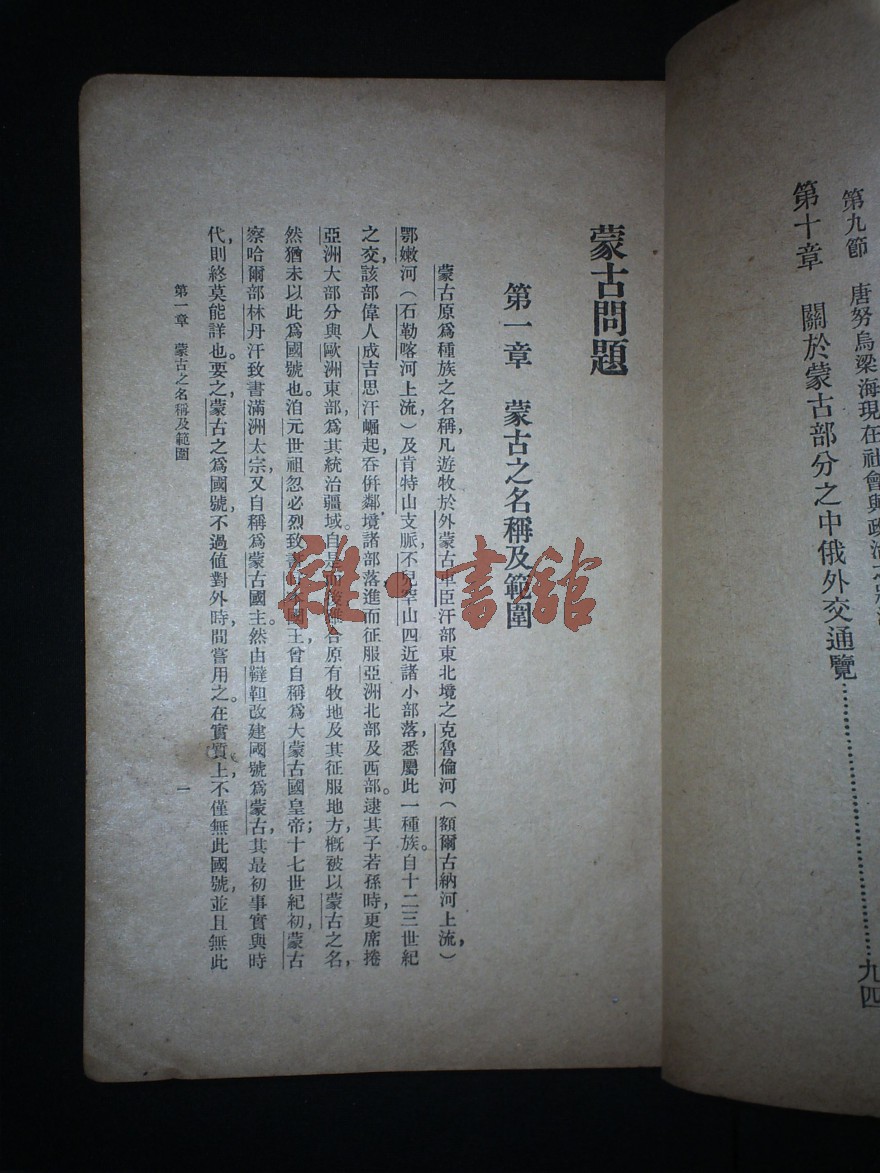 第九節　唐努烏梁海現在社會與政治之
第十章　關於蒙古部分之中俄外交通覽…………………九四
蒙古問題
第一章　蒙古之名稱及範圍
蒙古原爲種族之名稱，凡遊牧於外蒙古車臣汗部東北境之克魯倫河（額爾古納河上流，）
鄂嫩河（石勒喀河上流）及肯特山支脈，不兒罕山四近諸小部落，悉屬此一種族。自十二三世紀
之交，該部偉人成吉思汗崛起，吞併鄰境諸部落，進而征服亞洲北部及西部。逮其子若孫時，更席捲
亞洲大部分與歐洲東部，爲其統治疆域。自是合原有牧地及其征服地方，槪被以蒙古之名，
然猶未以此爲國號也。洎元世祖忽必烈致書國王，曾自稱爲大蒙古國皇帝；十七世紀初，蒙古
察哈爾部林丹汗致書滿洲太宗，又自稱爲蒙古國主。然由韃靼改建國號爲蒙古，其最初事實與時
代，則終莫能詳也。要之，蒙古之爲國號，不過値對外時，間嘗用之。在實質上，不僅無此國號，並且無此
第一章　蒙古之名稱及範圍
一
雜·書舘